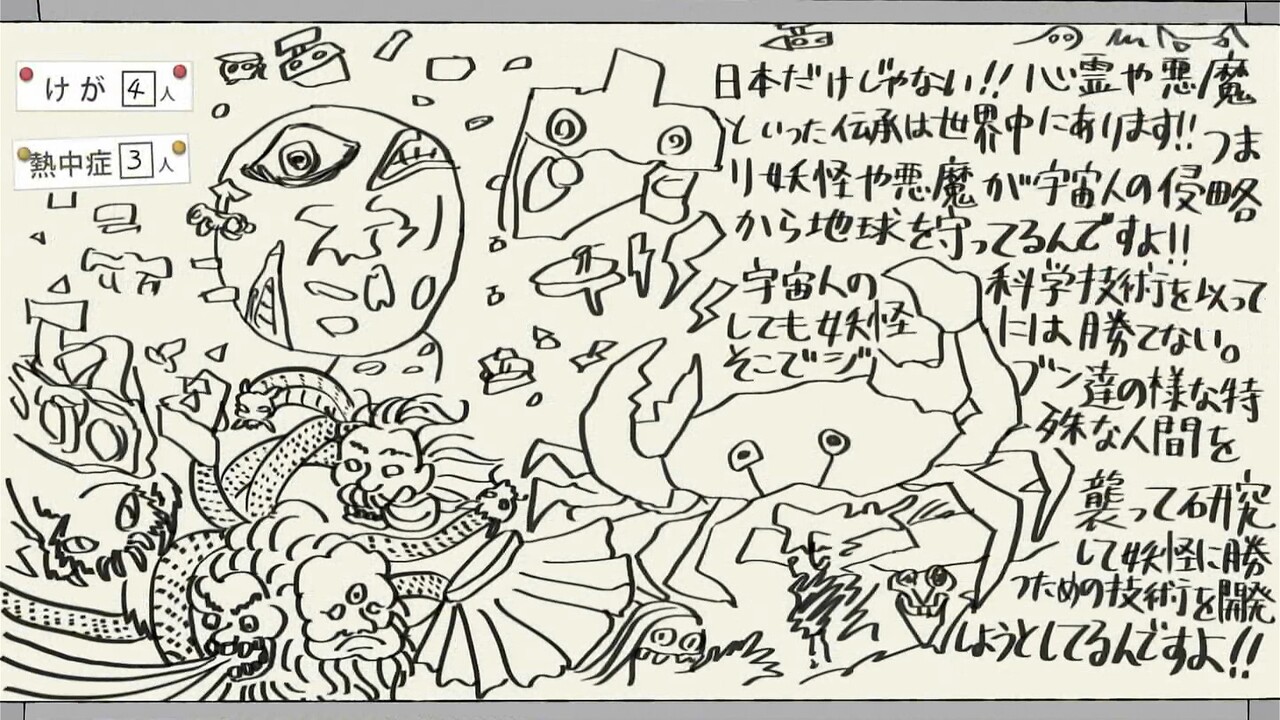 けが 4人
熱中症 3人
日本だけじゃない!! 心霊や悪魔
といった伝承は世界中にあります!! つま
り妖怪や悪魔が宇宙人の侵略
から地球を守ってるんですよ!!
宇宙人の 科学技術を以って
しても妖怪 には勝てない。
そこでジ ブン達の様な特
殊な人間を
襲って研究
して妖怪に勝
つための技術を開発
しようとしてるんですよ!!